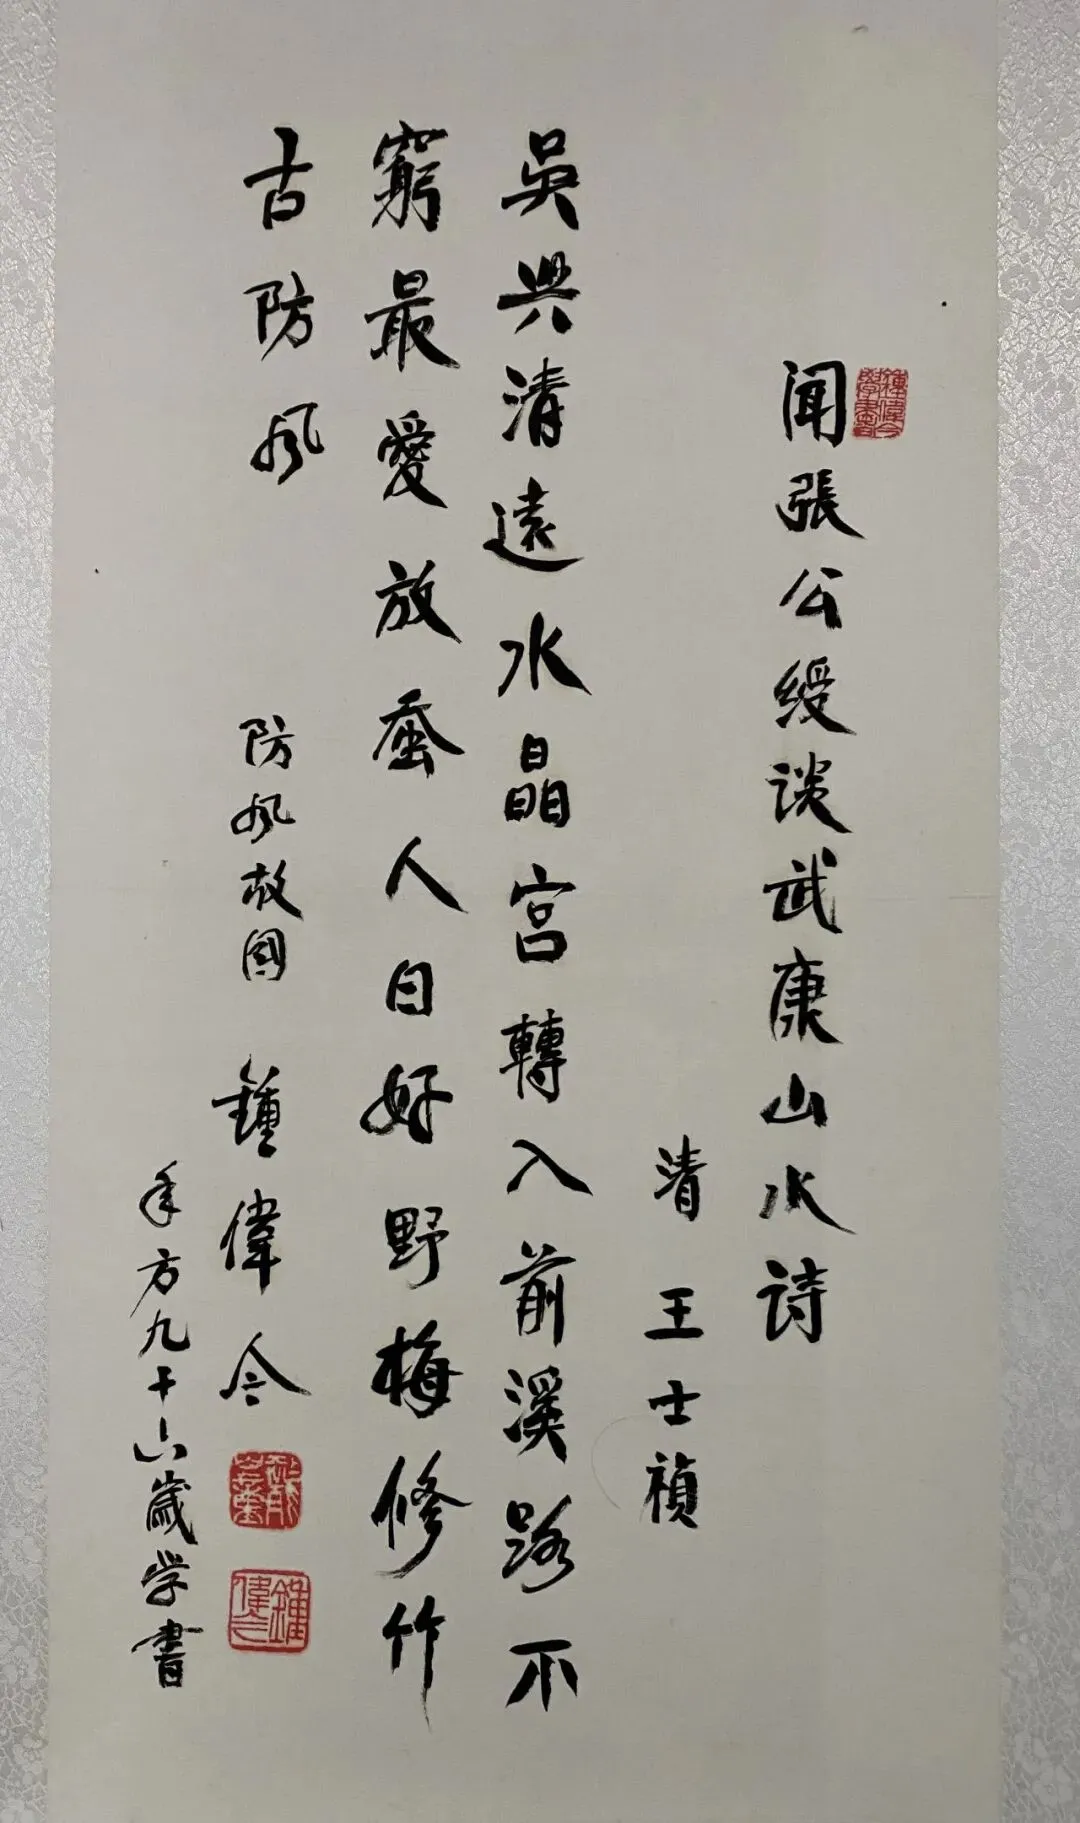 闻張公绶谈武康山水诗
清王士禎
吳興清遠水晶宮轉入前溪路不
窮最愛放蚕人日好野梅修竹
古防風
防風故國鍾偉今
年方九十六歲学書
鍾偉今
學書
鍾
偉今